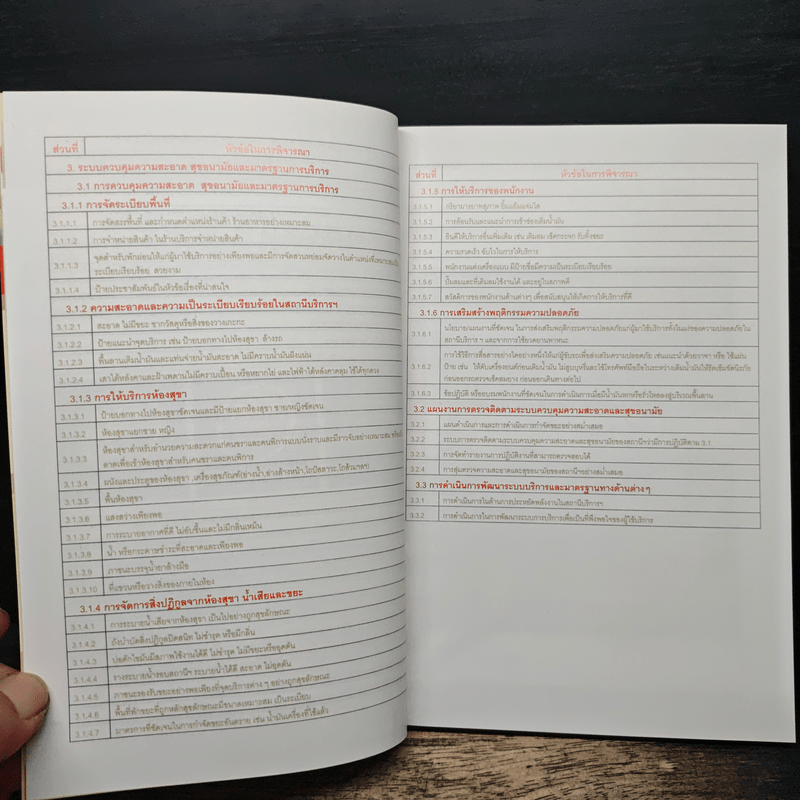 ส่วนที่ หัวข้อในการพิจารณา
3. ระบบควบคุมความสะอาด สุขอนามัยและมาตรฐานการบริการ
3.1 การควบคุมความสะอาด สุขอนามัยและมาตรฐานการบริการ
3.1.1 การจัดระเบียบพื้นที่
3.1.1.1 การจัดสรรพื้นที่ และกำหนดตำแหน่งร้านค้า ร้านอาหารอย่างเหมาะสม
3.1.1.2 การจำหน่ายสินค้า ในร้านบริการจำหน่ายสินค้า
3.1.1.3 จุดสำหรับพักผ่อนให้แก่ผู้มาใช้บริการอย่างเพียงพอและมีการจัดสวนหย่อมจัดวางในตำแหน่งที่เหมาะสมเป็น
ระเบียบเรียบร้อย สวยงาม
3.1.1.4 ป้ายประชาสัมพันธ์ในหัวข้อเรื่องที่น่าสนใจ
3.1.2 ความสะอาดและความเป็นระเบียบเรียบร้อยในสถานีบริการฯ
3.1.2.1 สะอาด ไม่มีขยะ ซากวัสดุหรือสิ่งของวางเกะกะ
3.1.2.2 ป้ายแนะนำจุดบริการ เช่น ป้ายบอกทางไปห้องสุขา ล้างรถ
3.1.2.3 พื้นลานเติมน้ำมันและแท่นจ่ายน้ำมันสะอาด ไม่มีคราบน้ำมันฝังแน่น
3.1.2.4 เสาใต้หลังคาและฝ้าเพดานไม่มีคราบเปื้อน หรือหยากไย่ และไฟฟ้าใต้หลังคาคลุม ใช้ได้ทุกดวง
3.1.3 การให้บริการห้องสุขา
3.1.3.1 ป้ายบอกทางไปห้องสุขาชัดเจนและมีป้ายแยกห้องสุขา ชายหญิงชัดเจน
3.1.3.2 ห้องสุขาแยกชาย หญิง
3.1.3.3 ห้องสุขาสำหรับอำนวยความสะดวกแก่คนชราและคนพิการแบบนั่งราบและมีราวจับอย่างเหมาะสม พร้อมทั้ง
ลาดเพื่อเข้าห้องสุขาสำหรับคนชราและคนพิการ
3.1.3.4 ผนังและประตูของห้องสุขา ,เครื่องสุขภัณฑ์(อ่างน้ำ,อ่างล้างหน้า,โถปัสสาวะ,โถส้วมฯลฯ)
3.1.3.5 พื้นห้องสุขา
3.1.3.6 แสงสว่างเพียงพอ
3.1.3.7 การระบายอากาศที่ดี ไม่อับชื้นและไม่มีกลิ่นเหม็น
3.1.3.8 น้ำ หรือกระดาษชำระที่สะอาดและเพียงพอ
3.1.3.9 ภาชนะบรรจุน้ำยาล้างมือ
3.1.3.10 ที่แขวนหรือวางสิ่งของภายในห้อง
3.1.4 การจัดการสิ่งปฏิกูลจากห้องสุขา น้ำเสียและขยะ
3.1.4.1 การระบายน้ำเสียจากห้องสุขา เป็นไปอย่างถูกสุขลักษณะ
3.1.4.2 ถังบำบัดสิ่งปฏิกูลปิดสนิท ไม่ชำรุด หรือมีกลิ่น
3.1.4.3 บ่อดักไขมันมีสภาพใช้งานได้ดี ไม่ชำรุด ไม่มีขยะหรืออุดตัน
3.1.4.4 รางระบายน้ำรอบสถานีฯ ระบายน้ำได้ดี สะอาด ไม่อุดตัน
3.1.4.5 ภาชนะรองรับขยะอย่างพอเพียงที่จุดบริการต่าง ๆ อย่างถูกสุขลักษณะ
3.1.4.6 พื้นที่พักขยะที่ถูกหลักสุขลักษณะมีขนาดเหมาะสม เป็นระเบียบ
3.1.4.7 มาตรการที่ชัดเจนในการกำจัดขยะอันตราย เช่น น้ำมันเครื่องที่ใช้แล้ว
ส่วนที่ หัวข้อในการพิจารณา
3.1.5 การให้บริการของพนักงาน
3.1.5.1 กริยามารยาทสุภาพ ยิ้มแย้มแจ่มใส
3.1.5.2 การต้อนรับและแนะนำการเข้าช่องเติมน้ำมัน
3.1.5.3 ยินดีให้บริการอื่นเพิ่มเติม เช่น เติมลม เช็ดกระจก รับทิ้งขยะ
3.1.5.4 ความรวดเร็ว ฉับไวในการให้บริการ
3.1.5.5 พนักงานแต่งเครื่องแบบ มีป้ายชื่อมีความเป็นระเบียบเรียบร้อย
3.1.5.6 ปั๊มลมและที่เติมลมใช้งานได้ และอยู่ในสภาพดี
3.1.5.7 สวัสดิการของพนักงานด้านต่างๆ เพื่อสนับสนุนให้เกิดการให้บริการที่ดี
3.1.6 การเสริมสร้างพฤติกรรมความปลอดภัย
3.1.6.1 นโยบาย/แผนงานที่ชัดเจน ในการส่งเสริมพฤติกรรมความปลอดภัยแก่ผู้มาใช้บริการทั้งในแง่ของความปลอดภัยใน
สถานีบริการ ฯ และจากการใช้ยวดยานพาหานะ
3.1.6.2 การใช้วิธีการสื่อสารอย่างใดอย่างหนึ่งให้แก่ผู้ขับรถเพื่อส่งเสริมความปลอดภัย เช่นแนะนำด้วยวาจา หรือ ใช้แผ่น
ป้าย เช่น ให้ดับเครื่องยนต์ก่อนเติมน้ำมัน ไม่สูบบุหรี่และใช้โทรศัพท์มือถือในระหว่างเติมน้ำมันให้รัดเข็มขัดนิรภัย
ก่อนออกรถตรวจเช็คลมยาง ก่อนออกเดินทางต่อไป
3.1.6.3 ข้อปฏิบัติ หรืออบรมพนักงานที่ชัดเจนในการดำเนินการเมื่อมีน้ำมันหกหรือรั่วไหลลงสู่บริเวณพื้นลาน
3.2 แผนงานการตรวจติดตามระบบควบคุมความสะอาดและสุขอนามัย
3.2.1 แผนดำเนินการและการดำเนินการกำจัดขยะอย่างสม่ำเสมอ
3.2.2 ระบบการตรวจติดตามระบบควบคุมความสะอาดและสุขอนามัยของสถานีฯว่ามีการปฏิบัติตาม 3.1
3.2.3 การจัดทำรายงานการปฏิบัติงานที่สามารถตรวจสอบได้
3.2.4 การสุ่มตรวจความสะอาดและสุขอนามัยของสถานีฯอย่างสม่ำเสมอ
3.3 การดำเนินการพัฒนาระบบบริการและมาตรฐานทางด้านต่างๆ
3.3.1 การดำเนินการในด้านการประหยัดพลังงานในสถานีบริการฯ
3.3.2 การดำเนินการในการพัฒนาระบบการบริการเพื่อเป็นที่พึงพอใจของผู้ใช้บริการ